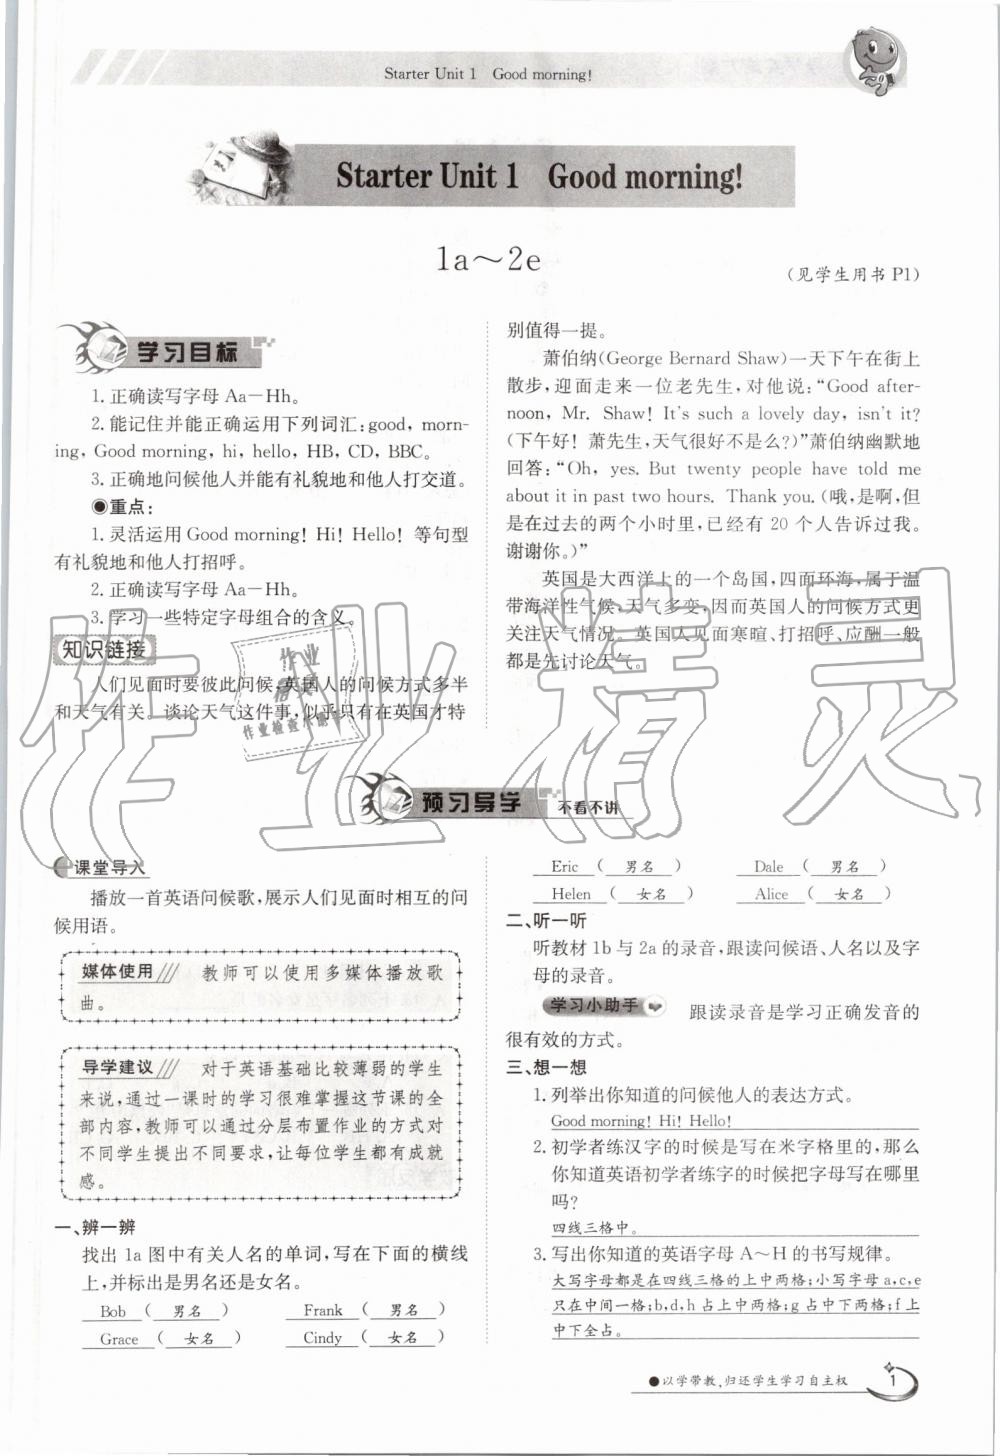 Starter Unit 1 Good morning!
Starter Unit 1 Good morning!
1a～2e
(见学生用书 P1)
学习目标
1. 正确读写字母 Aa－Hh。
2. 能记住并能正确运用下列词汇:good, morn-
ing, Good morning, hi, hello, HB, CD, BBC。
3. 正确地问候他人并能有礼貌地和他人打交道。
◉重点:
1. 灵活运用 Good morning! Hi! Hello! 等句型
有礼貌地和他人打招呼。
2. 正确读写字母 Aa－Hh。
3. 学习一些特定字母组合的含义。
知识链接
人们见面时要彼此问候,英国人的问候方式多半
和天气有关。谈论天气这件事,似乎只有在英国才特
别值得一提。
萧伯纳(George Bernard Shaw)一天下午在街上
散步,迎面走来一位老先生,对他说:“Good after-
noon, Mr. Shaw! It's such a lovely day, isn't it?
(下午好! 萧先生,天气很好不是么?)”萧伯纳幽默地
回答:“Oh, yes. But twenty people have told me
about it in past two hours. Thank you. (哦,是啊,但
是在过去的两个小时里,已经有 20 个人告诉过我。
谢谢你。)”
英国是大西洋上的一个岛国,四面环海,属于温
带海洋性气候,天气多变,因而英国人的问候方式更
关注天气情况。英国人见面寒暄、打招呼、应酬一般
都是先讨论天气。
作业精灵
作业
作业检查小帮手
预习导学 不看不讲
课堂导入
播放一首英语问候歌,展示人们见面时相互的问
候用语。
媒体使用 教师可以使用多媒体播放歌
曲。
导学建议 对于英语基础比较薄弱的学生
来说,通过一课时的学习很难掌握这节课的全
部内容,教师可以通过分层布置作业的方式对
不同学生提出不同要求,让每位学生都有成就
感。
一、辨一辨
找出 1a 图中有关人名的单词,写在下面的横线
上,并标出是男名还是女名。
Bob ( 男名 ) Frank ( 男名 )
Grace ( 女名 ) Cindy ( 女名 )
Eric ( 男名 ) Dale ( 男名 )
Helen ( 女名 ) Alice ( 女名 )
二、听一听
听教材 1b 与 2a 的录音,跟读问候语、人名以及字
母的录音。
学习小助手 跟读录音是学习正确发音的
很有效的方式。
三、想一想
1. 列举出你知道的问候他人的表达方式。
Good morning! Hi! Hello!
2. 初学者练汉字的时候是写在米字格里的,那么
你知道英语初学者练字的时候把字母写在哪里
吗?
四线三格中。
3. 写出你知道的英语字母 A～H 的书写规律。
大写字母都是在四线三格的上中两格;小写字母 a,c,e
只在中间一格;b,d,h 占上中两格;g 占中下两格;f 上
中下全占。
●以学带教,归还学生学习自主权
1